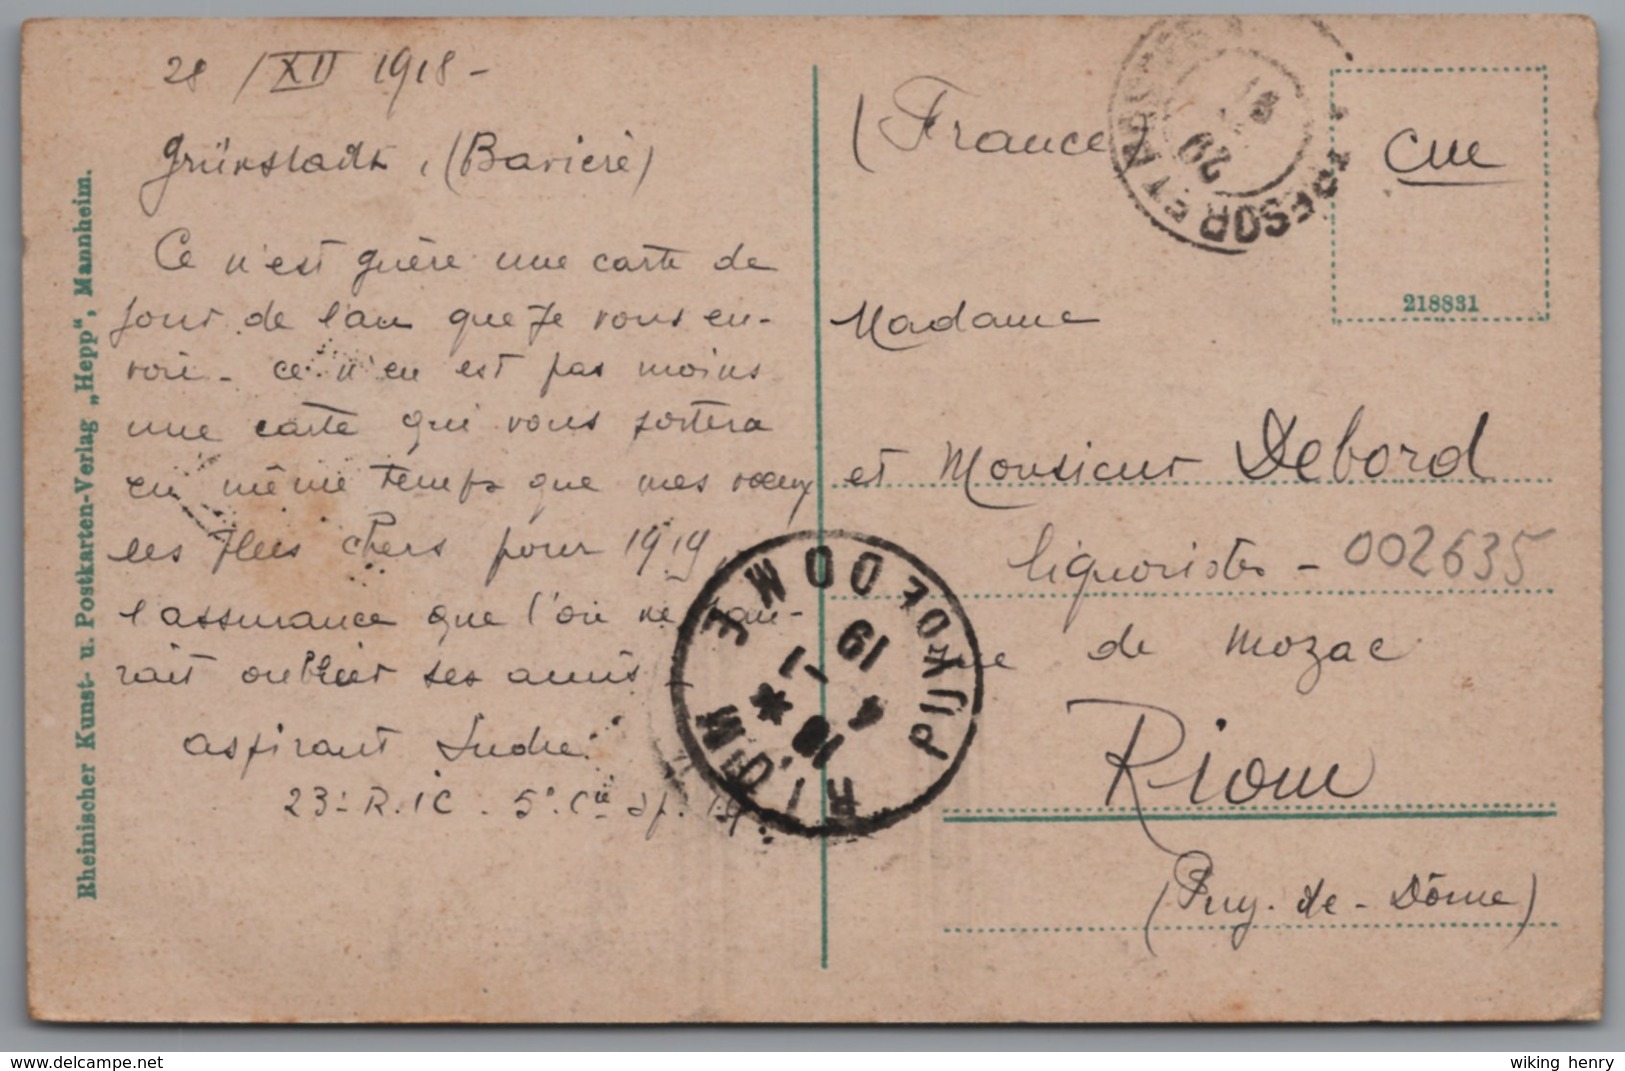 28 /XII 1918 -
Grünstadt, (Bavière)
Ce n'est guère une carte de
jour de l'an que je vous en-
voie - ce n'en est pas moins
une carte qui vous portera
en même temps que mes vœux
les plus chers pour 1919,
l'assurance que l'on ne sau-
rait oublier ses amis -
aspirant
23e R.IC. 5e Cie sp.
Rheinischer Kunst- u. Postkarten-Verlag „Hepp“, Mannheim.
(France)
TRESOR ET
29
CM
218831
Madame
et Monsieur Debord
liquoristes - 002635
rue de Mozac
Riom
(Puy-de-Dôme)
RIOM
PUY DE DOME
18
4 -1
19
www.delcampe.net
wiking henry